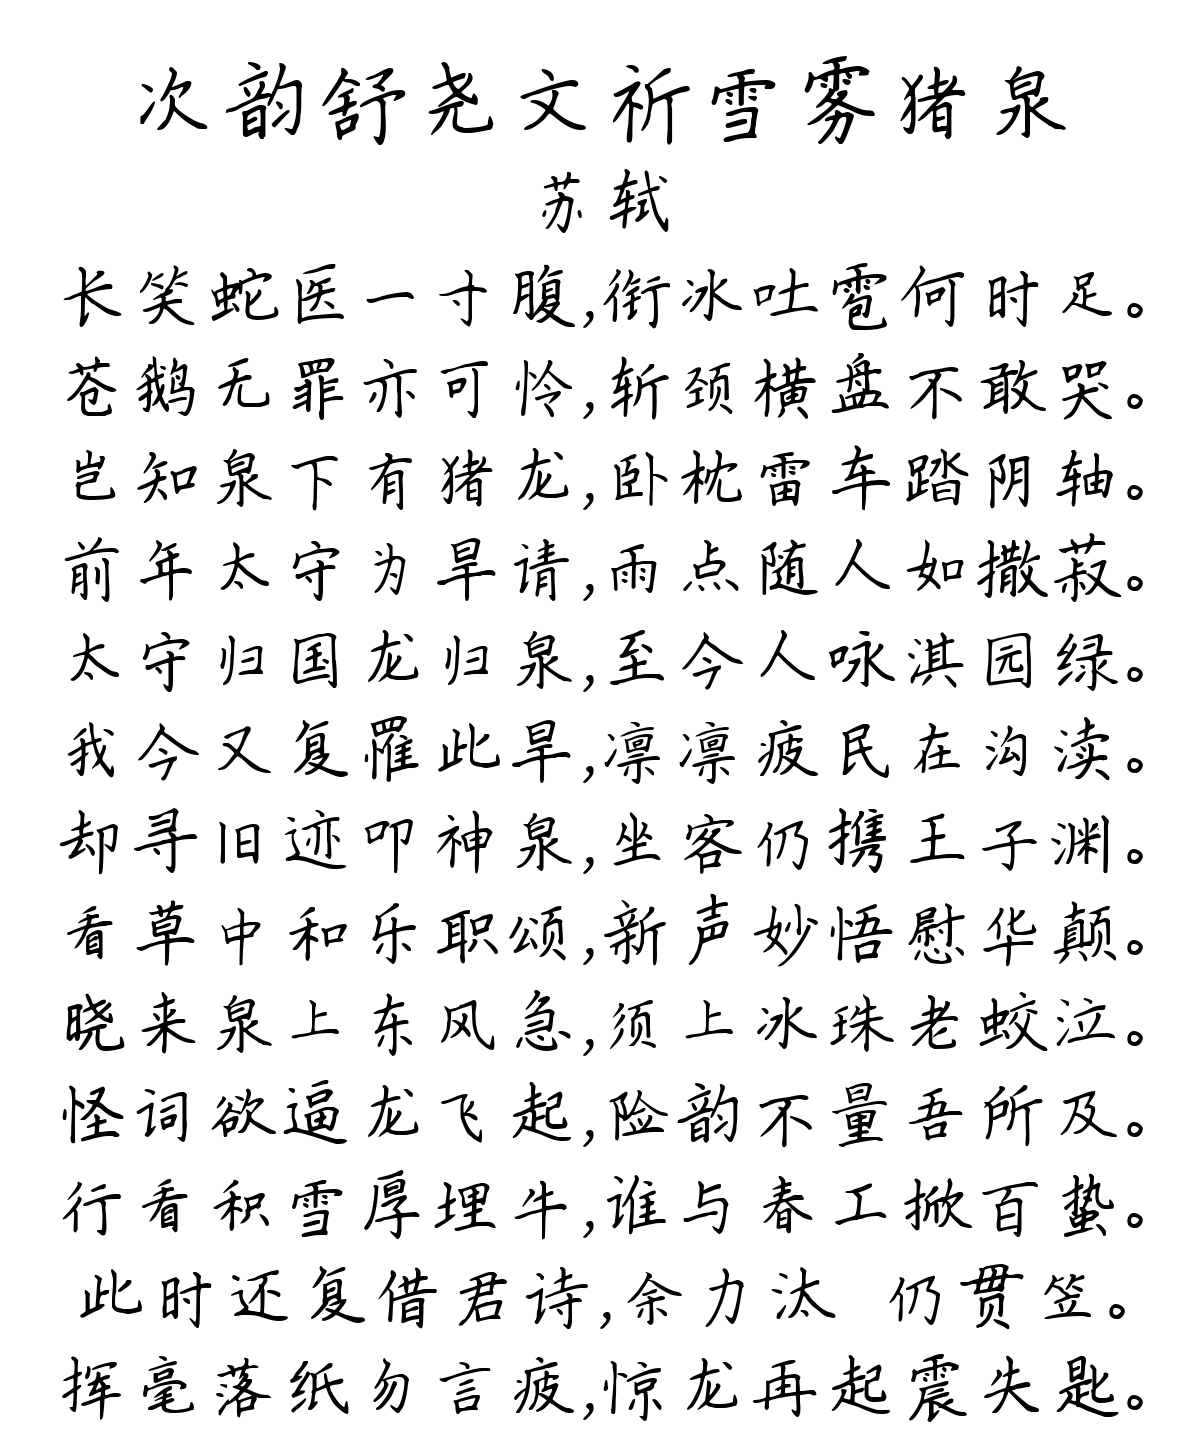 次韵舒尧文祈雪雾猪泉
苏轼
长笑蛇医一寸腹,衔冰吐雹何时足。
苍鹅无罪亦可怜,斩颈横盘不敢哭。
岂知泉下有猪龙,卧枕雷车踏阴轴。
前年太守为旱请,雨点随人如撒菽。
太守归国龙归泉,至今人咏淇园绿。
我今又复罹此旱,凛凛疲民在沟渎。
却寻旧迹叩神泉,坐客仍携王子渊。
看草中和乐职颂,新声妙悟慰华颠。
晓来泉上东风急,须上冰珠老蛟泣。
怪词欲逼龙飞起,险韵不量吾所及。
行看积雪厚埋牛,谁与春工掀百蛰。
此时还复借君诗,余力汰 仍贯笠。
挥毫落纸勿言疲,惊龙再起震失匙。